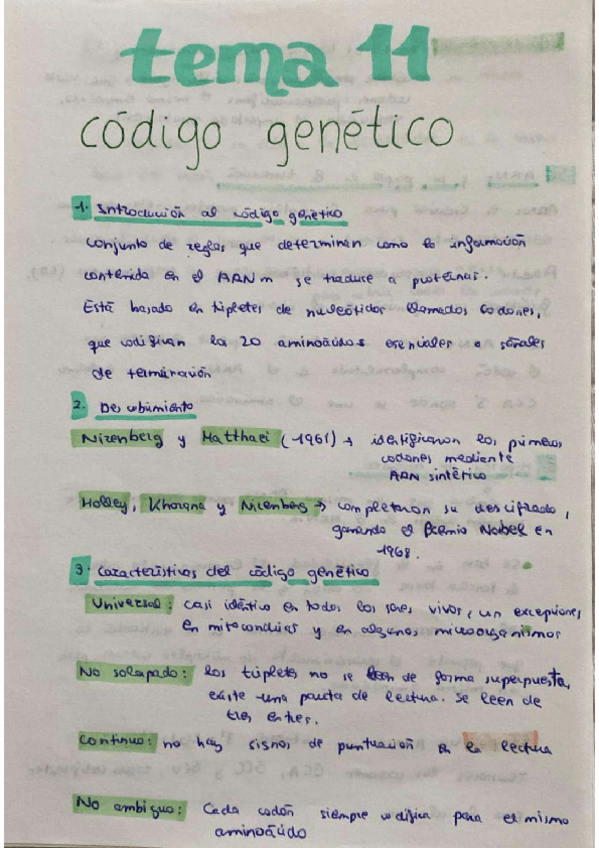 tema 11
código genético
1. Introducción al código genético
conjunto de reglas que determinan como la información
contenida en el ARNm se traduce a proteínas.
Está basado en tripletes de nucleótidos llamados codones,
que codifican los 20 aminoácidos esenciales o señales
de terminación
2. Descubrimiento
Nirenberg y Matthaei (1961) → identificaron los primeros
codones mediante
ARN sintético
Holley, Khorana y Nirenberg → completaron su descifrado,
ganando el Premio Nobel en
1968.
3. Características del código genético
Universal: casi idéntico en todos los seres vivos, con excepciones
en mitocondrias y en algunos microorganismos
No solapado: los tripletes no se leen de forma superpuesta,
existe una pauta de lectura. Se leen de
tres en tres.
Continuo: no hay signos de puntuación en la lectura
No ambiguo: Cada codón siempre codifica para el mismo
aminoácido